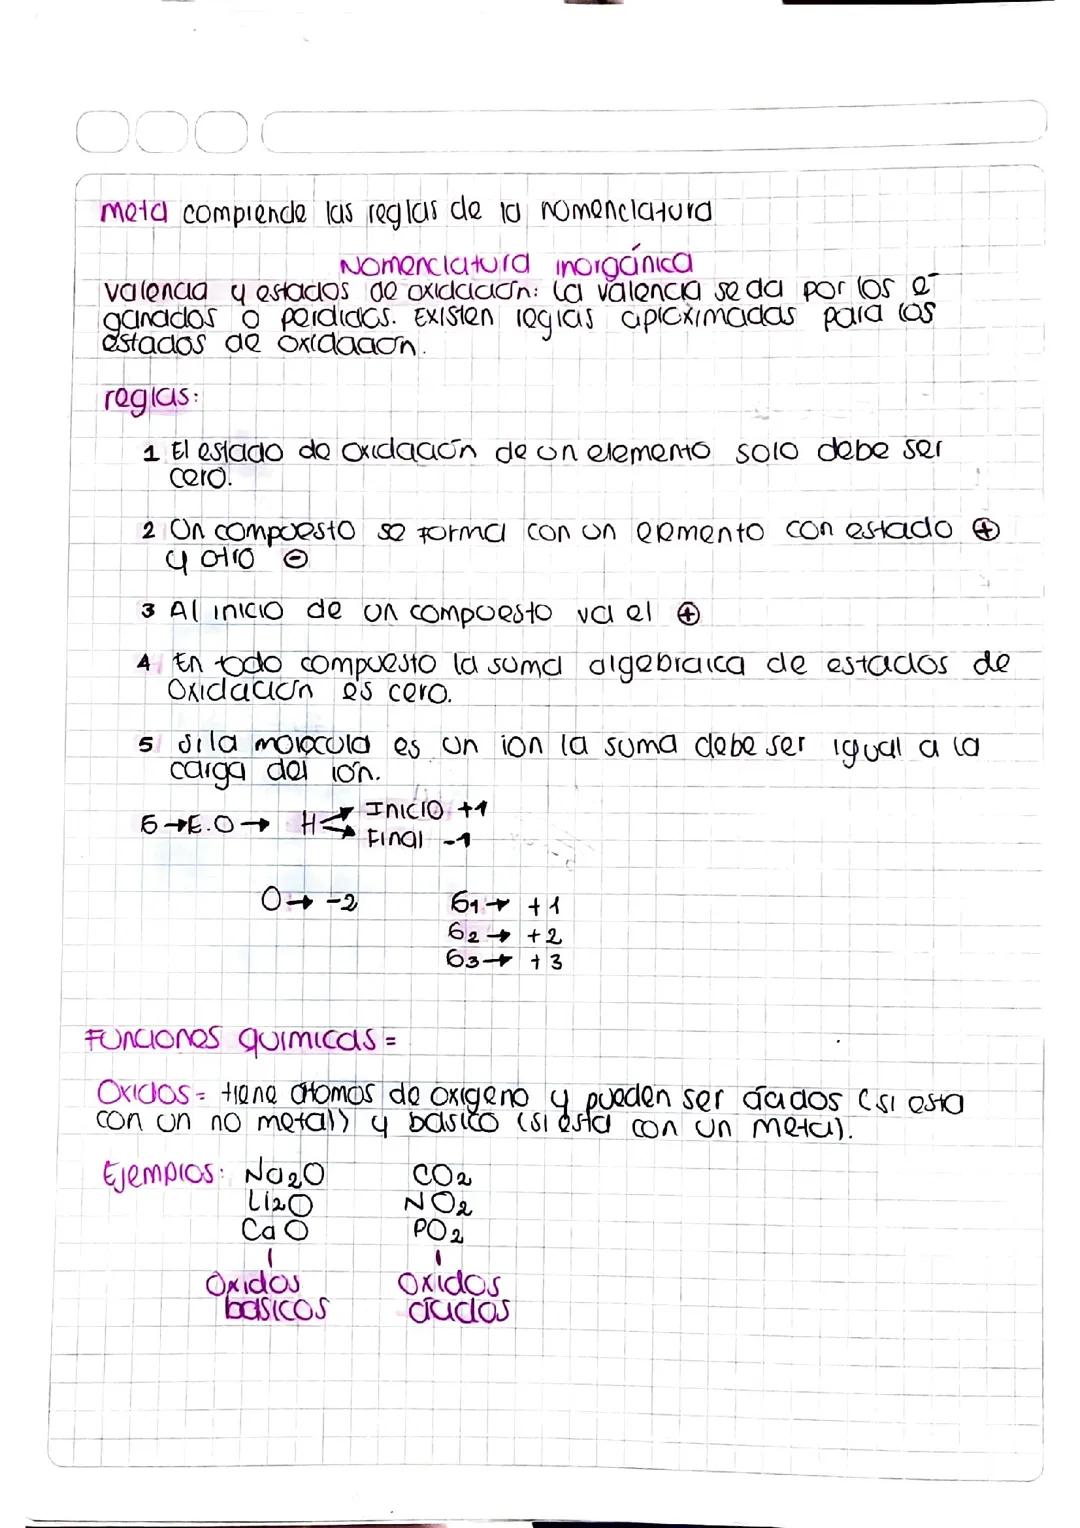 Meta comprende las reglas de la nomenclatura
Nomenclatura inorgánica
Valencia y estados de oxidación: La valencia se da por los e⁻
ganados o perdidos. Existen reglas aproximadas para los
estados de oxidación.
reglas:
1 El estado de oxidación de un elemento solo debe ser
cero.
2 Un compuesto se forma con un elemento con estado ⊕
y otro ⊖
3 Al inicio de un compuesto va el ⊕
4 En todo compuesto la suma algebraica de estados de
oxidación es cero.
5 Si la molecula es un ion la suma debe ser igual a la
carga del ión.
6→E.O→ H Inicio +1
Final -1
O→ -2 G1→ +1
G2→ +2
G3→ +3
Funciones quimicas=
Oxidos= tiene átomos de oxigeno y pueden ser ácidos (si esta
con un no metal) y básico (si está con un metal).
Ejemplos: Na2O CO2
Li2O NO2
CaO PO2
Oxidos Oxidos
básicos ácidos